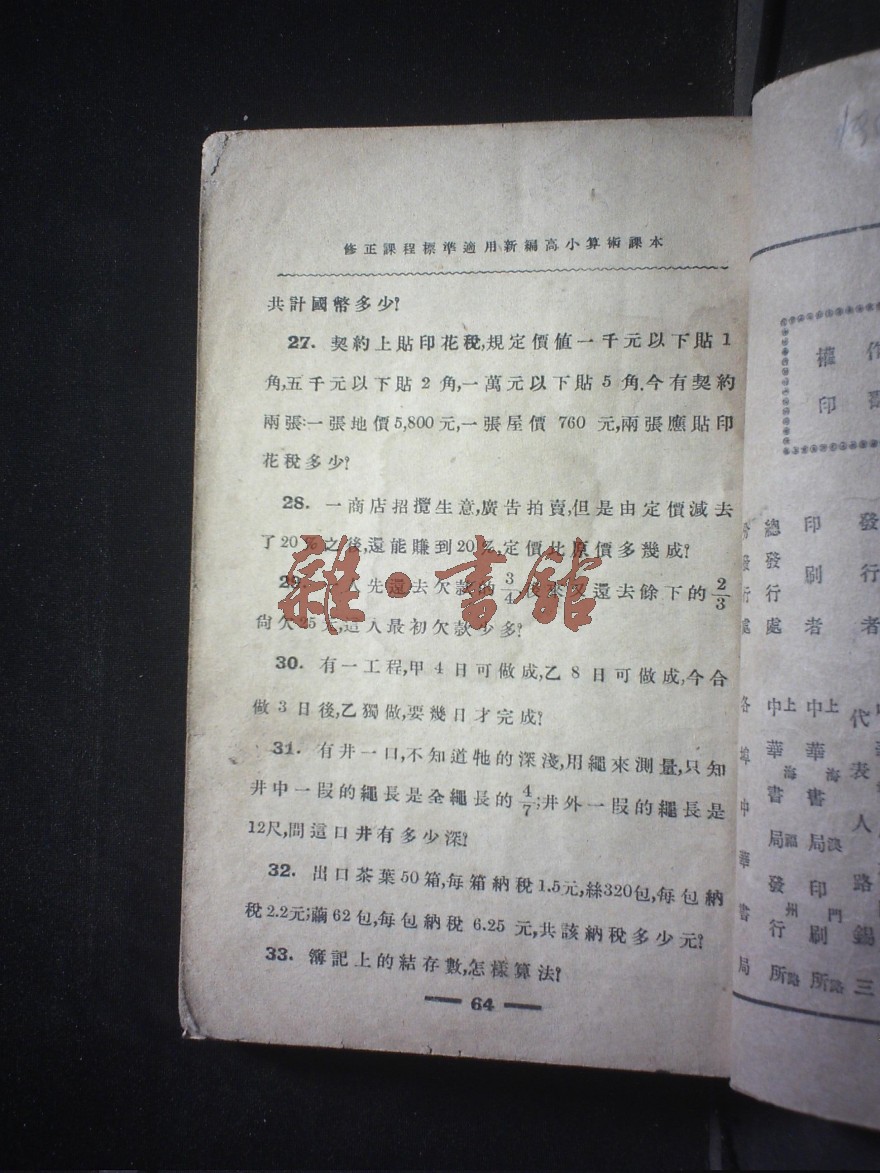 修正課程標準適用新編高小算術課本
共計國幣多少?
27. 契約上貼印花稅,規定價值一千元以下貼1
角,五千元以下貼2角,一萬元以下貼5角.今有契約
兩張:一張地價5,800元,一張屋價760元,兩張應貼印
花稅多少?
28. 一商店招攬生意,廣告拍賣,但是由定價減去
了20%之後,還能賺到20%,定價比原價多幾成?
29. 一人先還去欠款的3/4,後來又還去餘下的2/3
尙欠25元,這人最初欠款多少?
30. 有一工程,甲4日可做成,乙8日可做成,今合
做3日後,乙獨做,要幾日才完成?
31. 有井一口,不知道牠的深淺,用繩來測量,只知
井中一段的繩長是全繩長的4/7;井外一段的繩長是
12尺,問這口井有多少深?
32. 出口茶葉50箱,每箱納稅1.5元,絲320包,每包納
稅2.2元;繭62包,每包納稅6.25元,共該納稅多少元?
33. 簿記上的結存數,怎樣算法?
64
雜·書館
作
權
印
發行者
代表人
路錫三
印刷者
上海澳門路
中華書局印刷所
總發行處
上海福州路
中華書局發行所
各埠中華書局